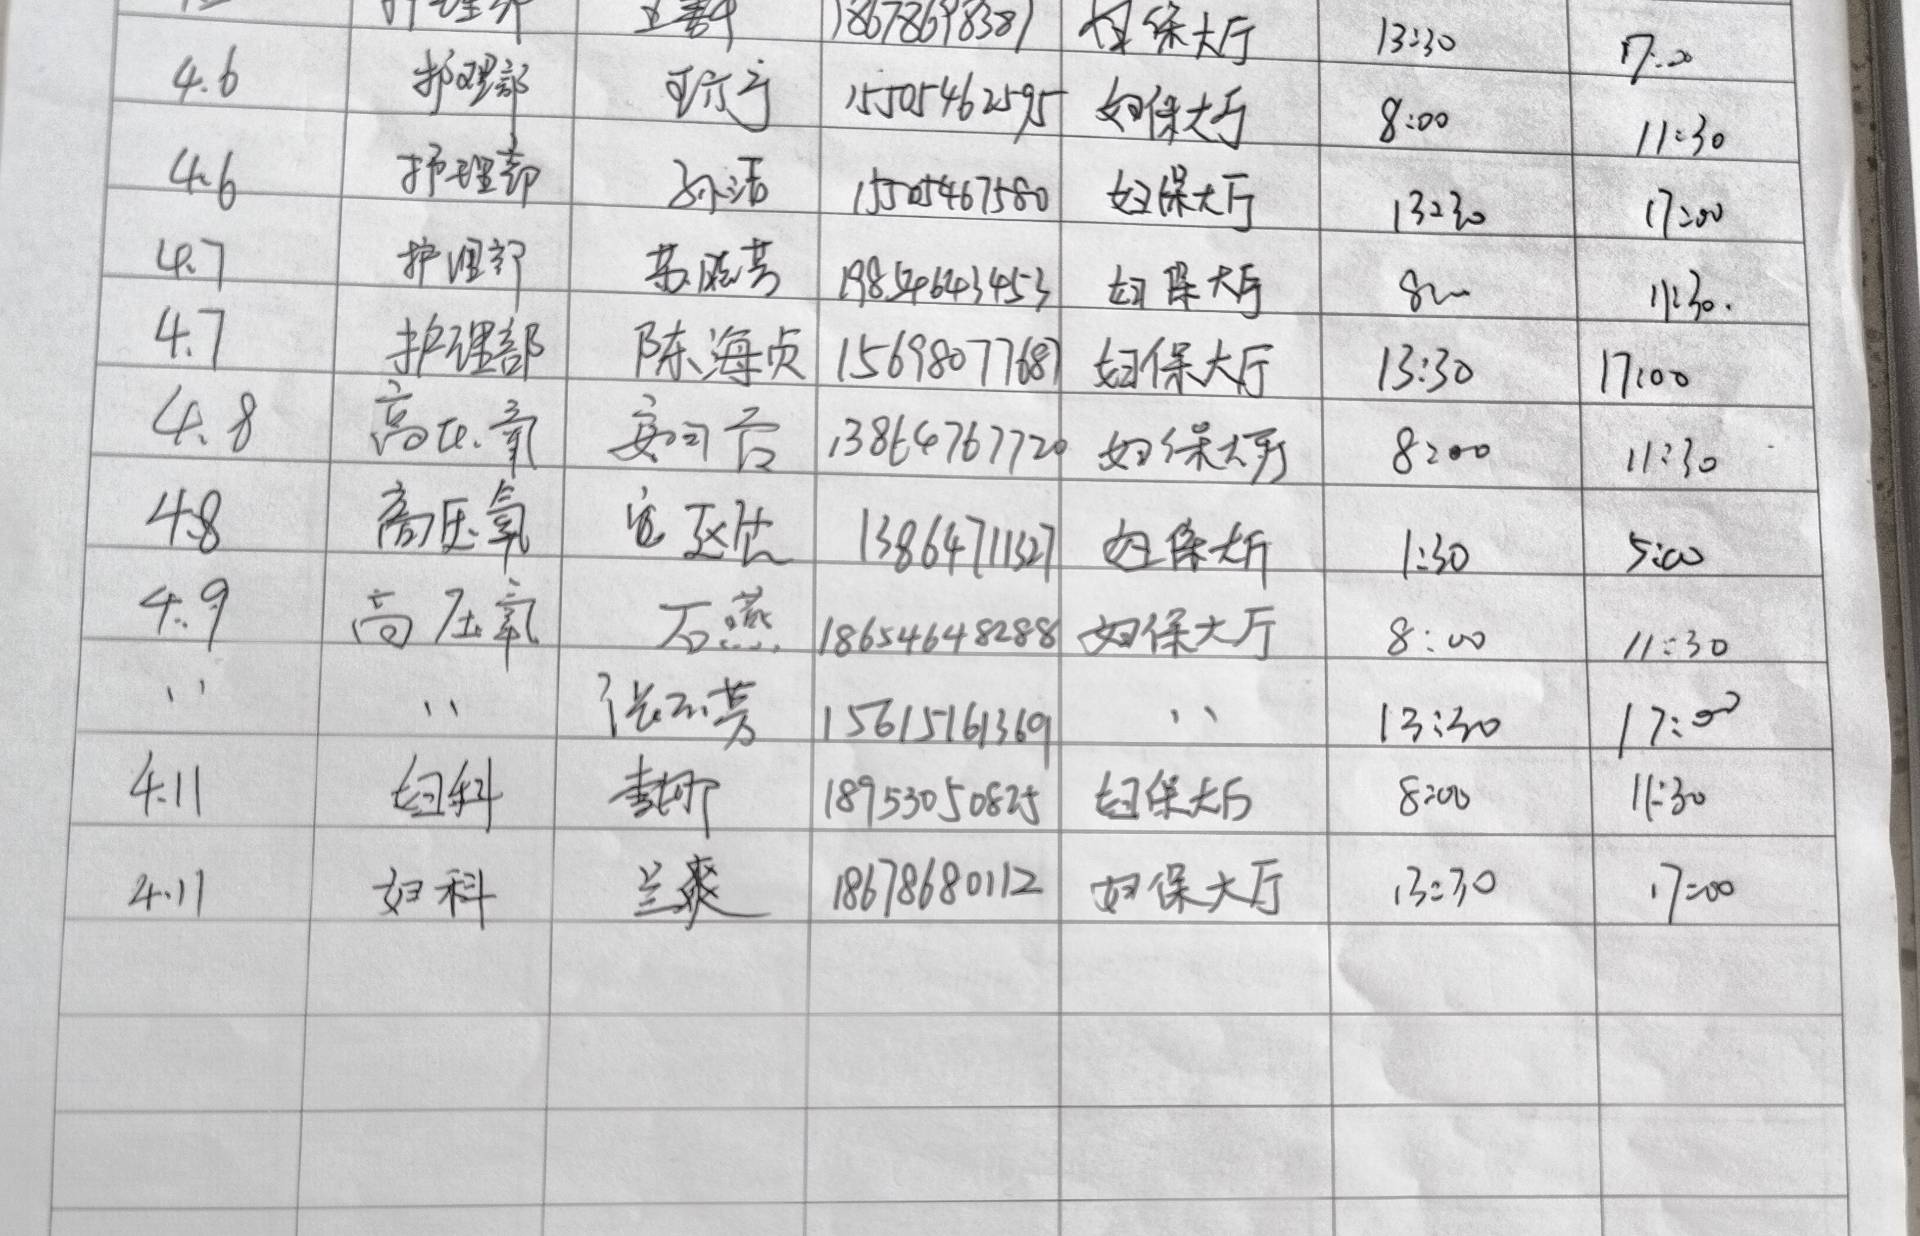 护理部 18678698381 妇保大厅 13:30 17:00
4.6 护理部 15505462595 妇保大厅 8:00 11:30
4.6 护理部 孙洁 15505467580 妇保大厅 13:30 17:00
4.7 护理部 苏晓芳 19854643453 妇保大厅 8:00 11:30.
4.7 护理部 陈海贞 15698077687 妇保大厅 13:30 17:00
4.8 高压氧 13864767720 妇保大厅 8:00 11:30
4.8 高压氧 13864711327 妇保大厅 1:30 5:00
4.9 高压氧 石燕 18654648288 妇保大厅 8:00 11:30
〃 〃 15615161369 〃 13:30 17:00
4.11 妇科 18953050825 妇保大厅 8:00 11:30
4.11 妇科 兰爽 18678680112 妇保大厅 13:30 17:00